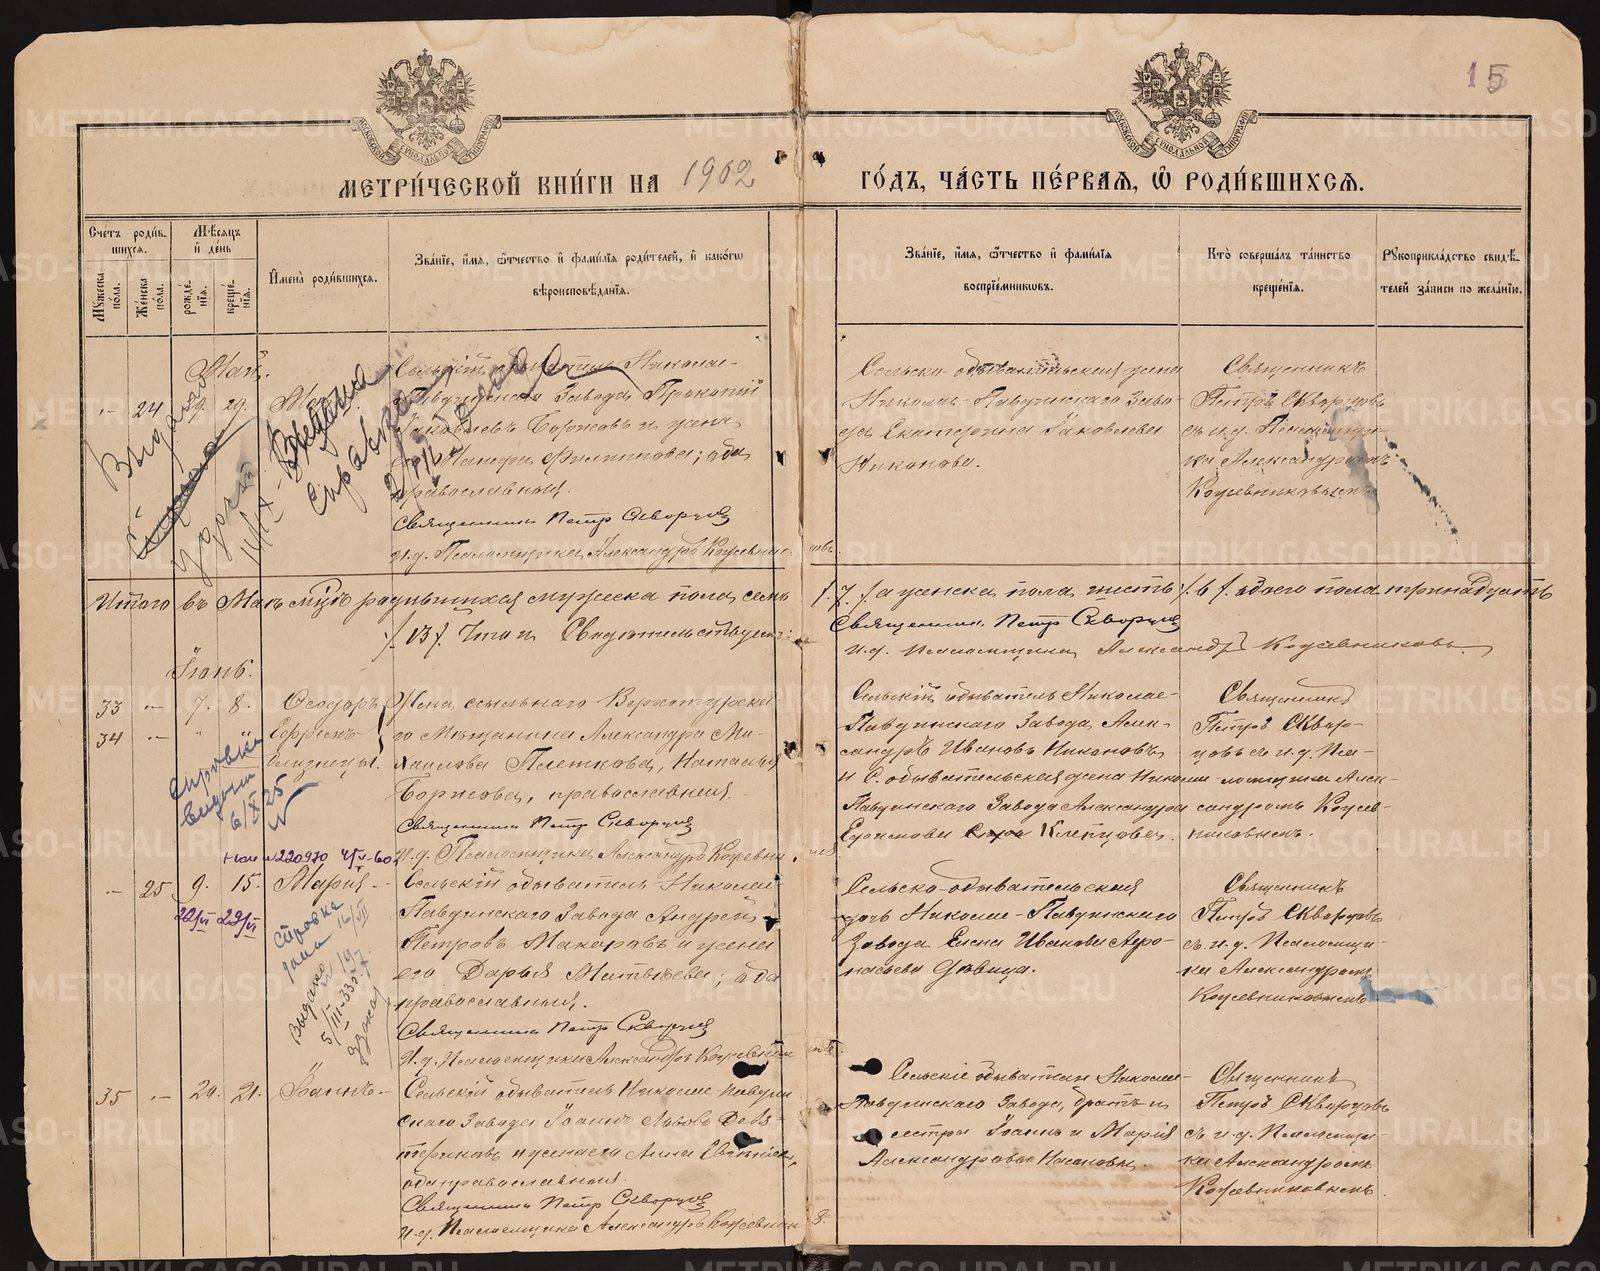 15
МЕТРИ́ЧЕСКОЙ КНИ́ГИ НА 1902 ГО́ДЪ, ЧА́СТЬ ПЕ́РВАЯ, Ѡ҆ РОДИ́ВШИХСЯ.
Сче́тъ роди́в-
шихся.
Мѣ́сяцъ
и҆ де́нь
Мꙋ́жеска по́ла.
Же́нска по́ла.
рожде́-
нїя.
креще́-
нїя.
И҆мена̀ роди́вшихся.
Зва́нїе, и҆́мя, ѻ҆́тчество и҆ фами́лїя роди́телей, и҆ како́гѡ
вѣроисповѣ́данїя.
Зва́нїе, и҆́мя, ѻ҆́тчество и҆ фами́лїя
воспрїе́мникѡвъ.
Кто̀ соверша́лъ та́инство
креще́нїя.
Рꙋкоприкла́дство свидѣ́-
телей за́писи по жела́нїю.
Май.
24 9. 29.
Сельскій обыватель Николае-
Павдинскаго Завода Прокопій
Яковлевъ Борисовъ и жена
его Манефа Филиппова; оба
православныя.
Священникъ Петр Скворцов
и.д. Псаломщика Александръ Кожевников.
Сельско-обывательская жена
Николае-Павдинскаго Заво-
да Екатерина Яковлева
Никонова.
Священникъ
Петръ Скворцовъ
съ и.д. Псаломщи-
ка Александромъ
Кожевниковымъ
Выдано
Справка
14/IX-
Справка
Итого въ Маѣ мцѣ родившихся мужеска пола семь /7/ а женска пола шесть /6/ обоего пола тринадцать
/13/. Что и Свидѣтельствуемъ:
Священникъ Петр Скворцов
и.д. псаломщика Александръ Кожевниковъ.
Іюнь.
33 - 7. 8. Ѳеодоръ
34 - " " Ефремъ
близнецы.
Жена ссыльнаго Верхотурска-
го Мѣщанина Александра Ми-
хаилова Плеткова, Наталья
Борисова, православная.
Священникъ Петр Скворцов
И.д. Псаломщика Александръ Кожевни
Сельскій обыватель Николае-
Павдинскаго Завода Алек-
сандръ Ивановъ Никоновъ
и С. обывательская жена Николае
Павдинскаго Завода Александра
Ефимова Клепцова.
Священникъ
Петръ Сквор-
цовъ съ и.д. Пса-
ломщика Алек-
сандромъ Кожев-
никовымъ.
Справка
выдана
6/X 25
220970 4/V-60
- 25 9. 15. Марія.
22/VI 29/VI
Сельскій обыватель Николае-
Павдинскаго Завода Андрей
Петровъ Макаровъ и жена
его Дарья Матвѣева; оба
православныя.
Священникъ Петр Скворцов
И.д. Псаломщика Александръ Кожевник
Сельско-обывательская
дочь Николае-Павдинскаго
Завода Елена Иванова Аѳо-
насьева дѣвица.
Священникъ
Петръ Скворцовъ
съ и.д. Псаломщи-
ка Александромъ
Кожевниковымъ
справка
дана 16/VII
Выдано
5/III-33г.
35 - 20. 21. Іоаннъ.
Сельскій обыватель Николае-Павдин-
скаго Завода Іоаннъ Львовъ Девя-
териковъ и жена его Анна
оба православныя.
Священникъ Петр Скворцов
И.д. Псаломщика Александръ Кожевник
Сельскіе обыватели Николае-
Павдинскаго Завода, братъ и
сестра Іоаннъ и Марія
Александровы
Священникъ
Петръ Скворцовъ
съ и.д. Псаломщи-
ка Александромъ
Кожевниковымъ.
METRIKI.GASO-URAL.RU